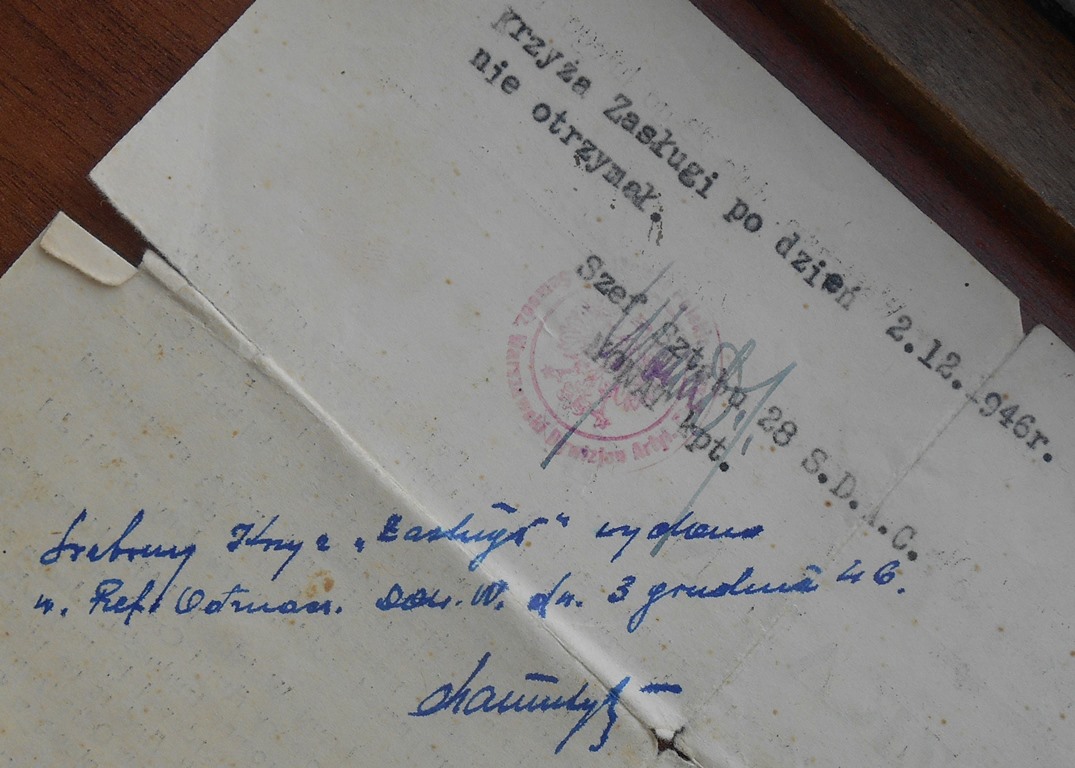 Krzyża Zasługi po dzień 2.12.946r.
nie otrzymał.
Szef Sztabu 28 S.D.A.C.
Nowak kpt.
Srebrny Krzyż „Zasługi" wydano
w. Ref. Odznacz. DOW. W. dn. 3 grudnia 46.